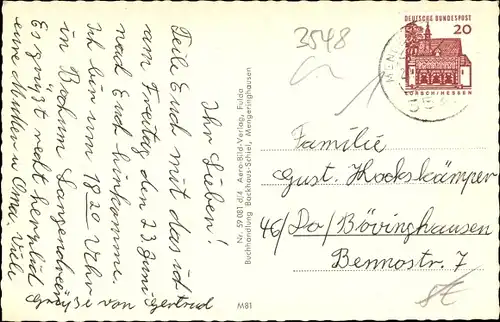 Ihr Lieben!
Teile Euch mit das ich
am Freitag den 23 Juni
nach Euch hinkomme.
Ich bin um 1820 Uhr
in Bochum Langendreer
Es grüßt recht herzlich
eure Mutter u Oma Viele
Grüße von Gertrud
Nr. 59 081 d/4 Aero-Bild-Verlag, Fulda
Buchhandlung Backhaus-Schiel, Mengeringhausen
M81
3548
DEUTSCHE BUNDESPOST
20
LORSCH/HESSEN
MEN
Familie
Gust. Hockskämper
46/Do/Bövinghausen
Bennostr. 7
8€